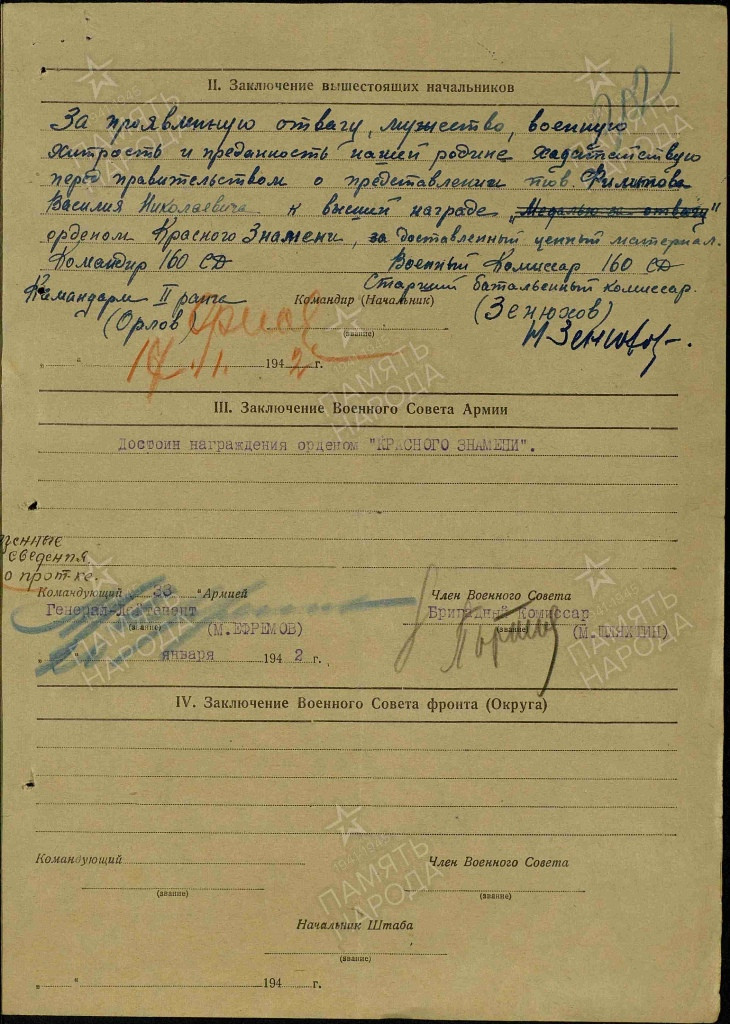 202
II. Заключение вышестоящих начальников
За проявленную отвагу, мужество, военную
хитрость и преданность нашей родине ходатайствую
перед правительством о представлении тов. Филипова
Василия Николаевича к высшей награде „Медалью за отвагу"
орденом Красного Знамени, за доставленный ценный материал.
Командир 160 СД Военный Комиссар 160 СД
Командарм II ранга Командир (Начальник) Старший батальенный комиссар.
(Орлов) (звание) (Зенюхов)
„ 17 " 1. 1942 г.
III. Заключение Военного Совета Армии
Достоин награждения орденом "КРАСНОГО ЗНАМЕНИ".
сведения
о прот-ке.
Командующий „ 33 " Армией Член Военного Совета
Генерал-Лейтенант Бригадный Комиссар
(звание) (М.ЕФРЕМОВ) (звание) (М.ШЛЯХТИН)
„ " января 1942 г.
IV. Заключение Военного Совета фронта (Округа)
Командующий Член Военного Совета
(звание) (звание)
Начальник Штаба
(звание)
„ " 194 г.
ПАМЯТЬ НАРОДА